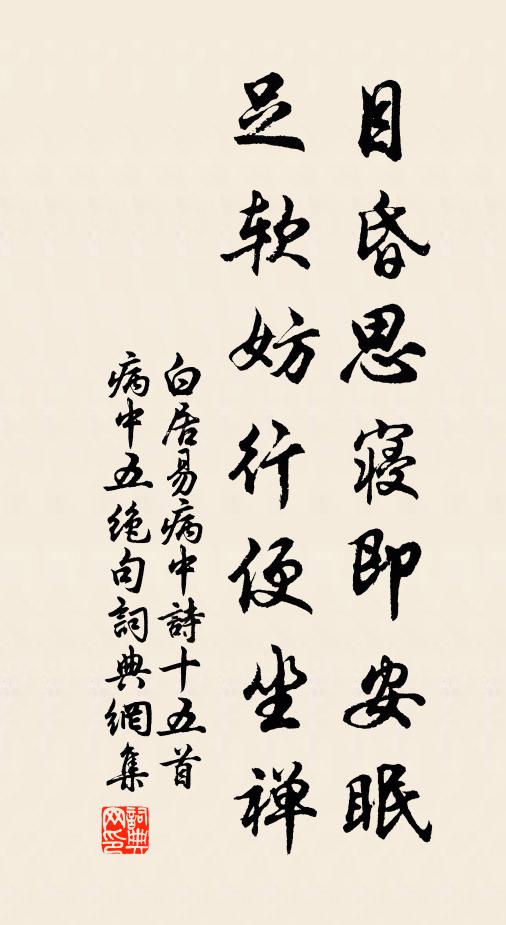 目昏思寢即安眠
足軟妨行便坐禅
白居易病中詩十五首
病中五绝句詞典網集
詞典网印